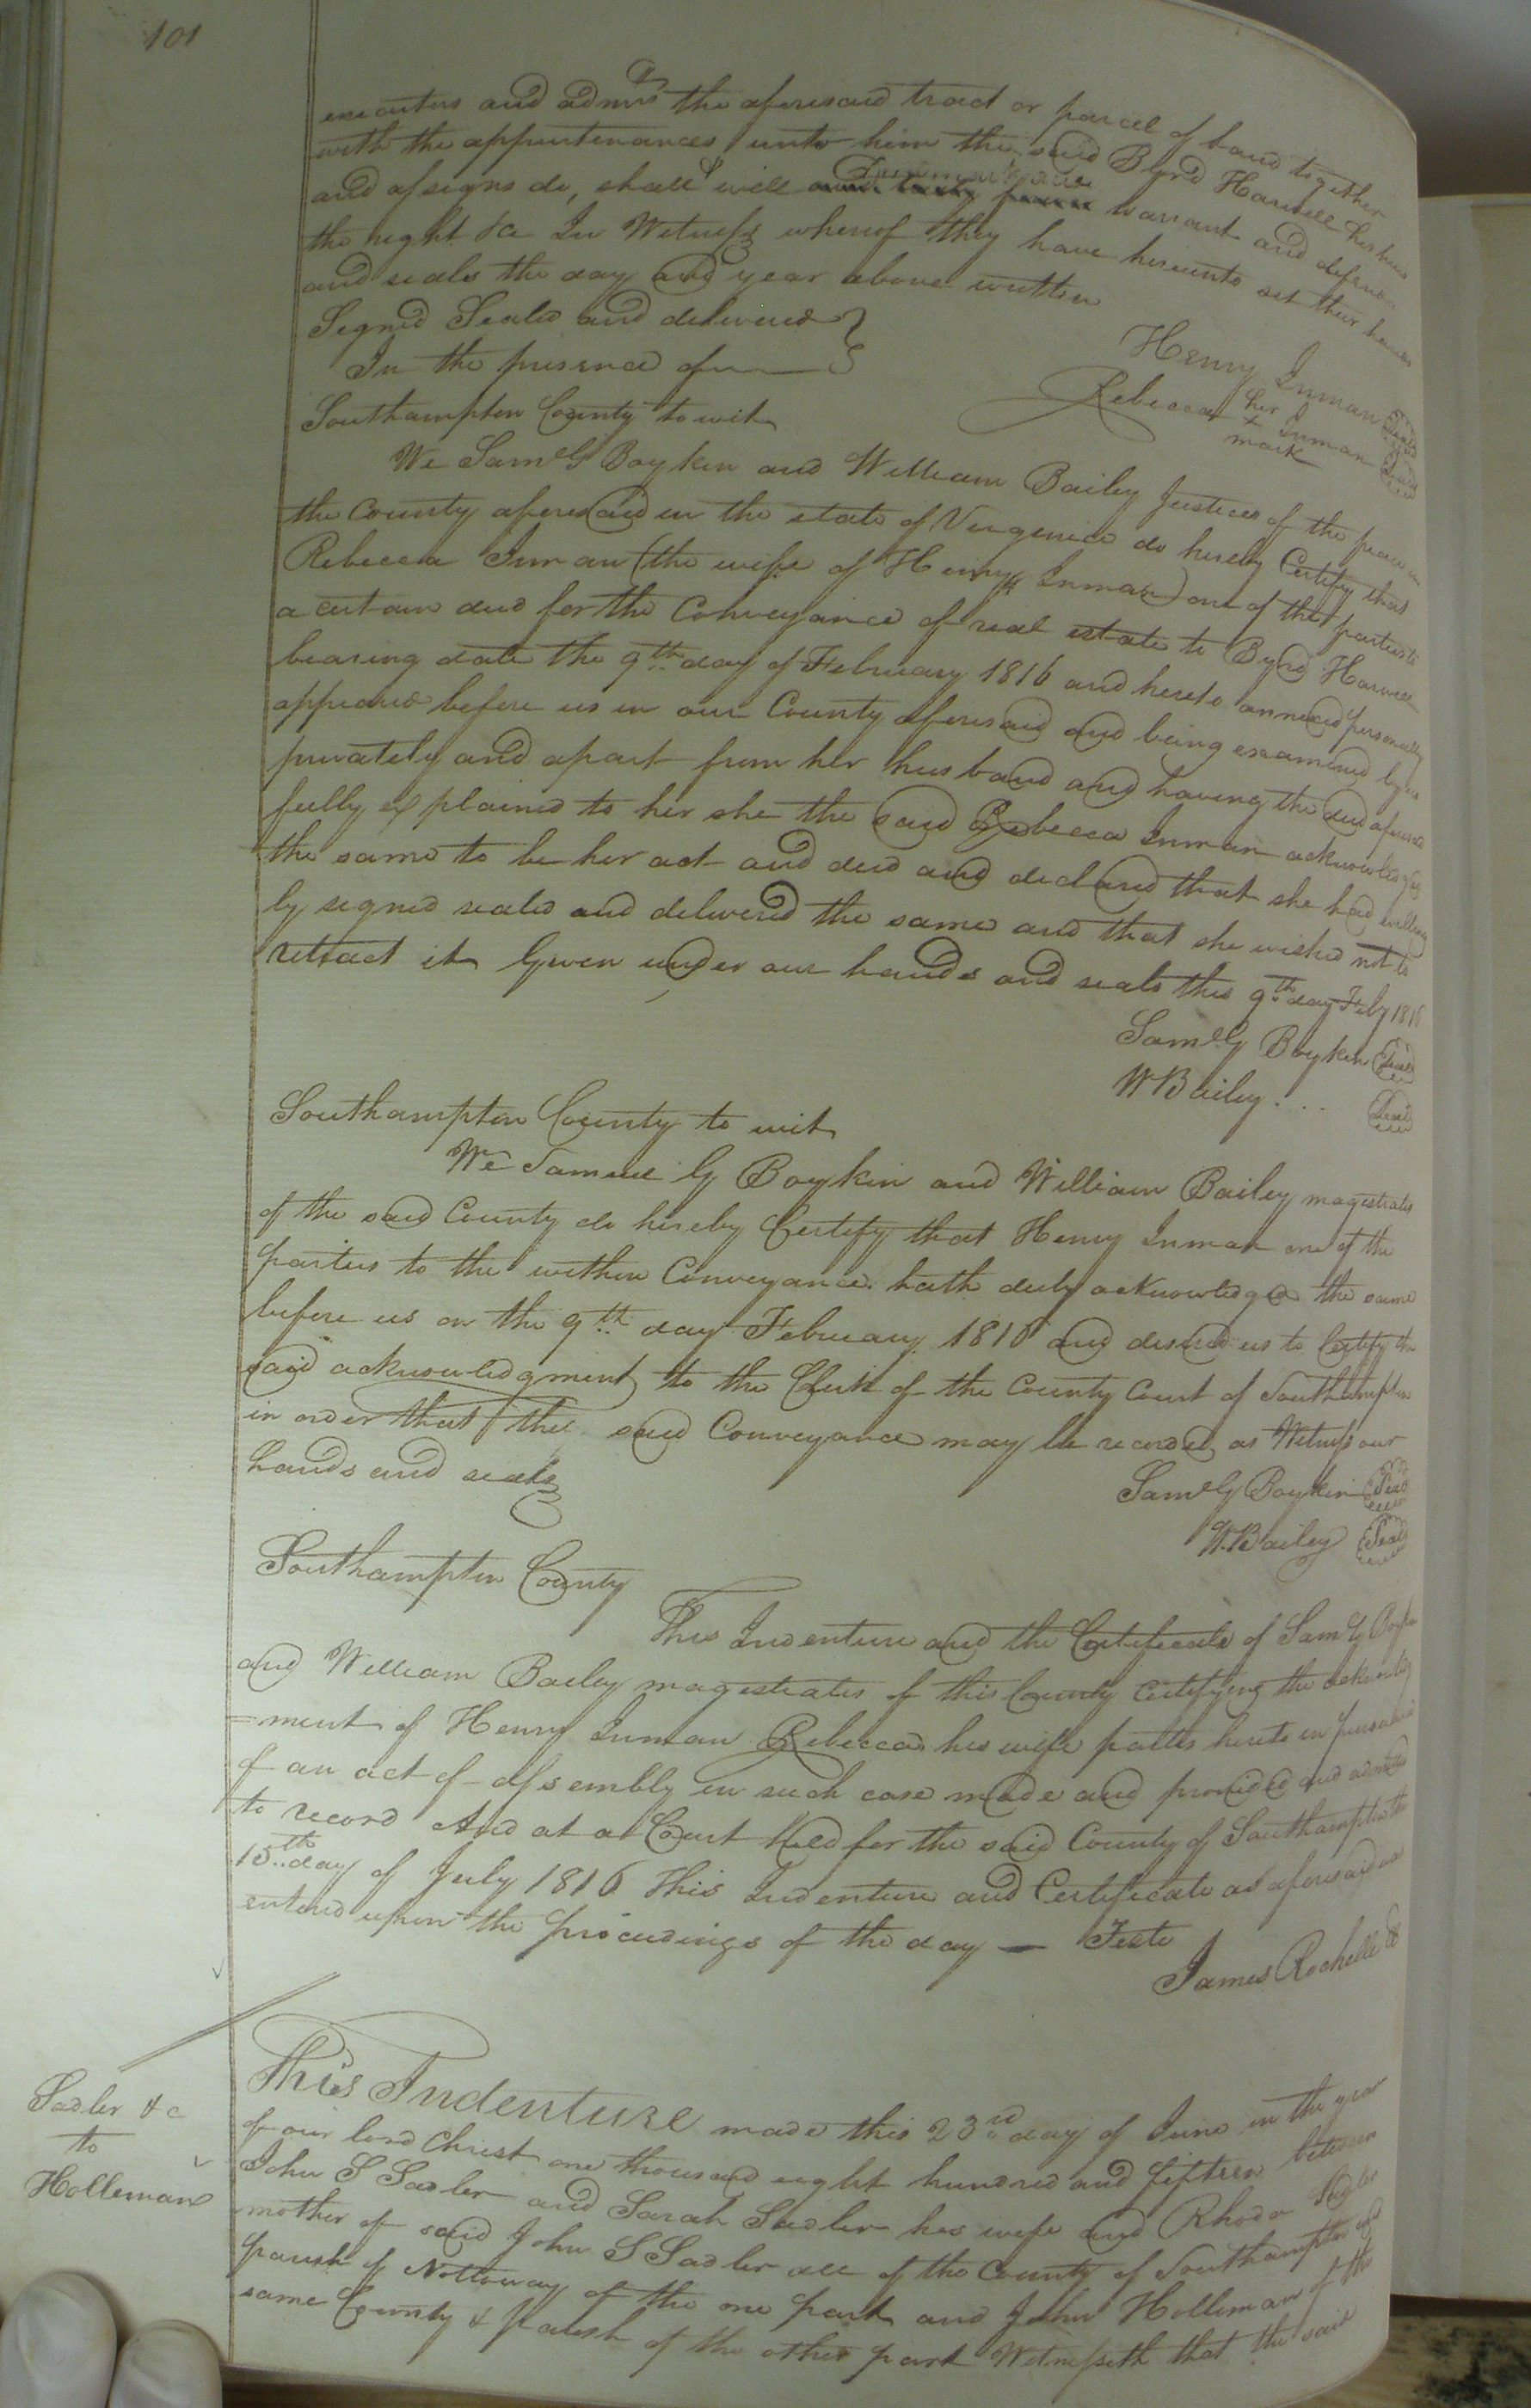 101
executors and admrs the aforesaid tract or parcel of land together
with the appurtenances unto him the said Byrd Harwell his heirs
and assigns do, shall & will warrant and defend
the right &c In Witness whereof they have hereunto set their hands
and seals the day and year above written
Signed Sealed and delivered
In the presence of
Henry Inman Seal
Rebecca her + mark Inman Seal
Southampton County to wit
We Saml G Boykin and William Bailey Justices of the peace in
the County aforesaid in the state of Virginia do hereby Certify that
Rebecca Inman (the wife of Henry Inman) one of the parties to
a certain deed for the Conveyance of real estate to Byrd Harwell
bearing date the 9th day of February 1816 and hereto annexed personally
appeared before us in our County aforesaid and being examined by us
privately and apart from her husband and having the deed aforesaid
fully explained to her she the said Rebecca Inman acknowledged
the same to be her act and deed and declared that she had willing
ly signed sealed and delivered the same and that she wished not to
retract it Given under our hands and seals this 9th day Feby 1816
Saml G Boykin Seal
W Bailey... Seal
Southampton County to wit
We Samuel G Boykin and William Bailey magistrates
of the said County do hereby Certify that Henry Inman one of the
parties to the within Conveyance hath duly acknowledged the same
before us on the 9th day February 1816 and desired us to Certify the
said acknowledgment to the Clerk of the County Court of Southampton
in order that the said Conveyance may be recorded as Witness our
hands and seals
Saml G Boykin Seal
W. Bailey Seal
Southampton County
This Indenture and the Certificate of Saml G Boykin
and William Bailey magistrates of this County Certifying the acknowledg
=ment of Henry Inman Rebecca his wife parties hereto in pursuance
of an act of assembly in such case made and provided and admitted
to record And at a Court Held for the said County of Southampton the
15th day of July 1816 This Indenture and Certificate as aforesaid was
entered upon the proceedings of the day — Teste
James Rochelle Cl
Sadler &c
to
Holleman
This Indenture made this 23rd day of June in the year
of our lord Christ one thousand eight hundred and fifteen between
John S Sadler and Sarah Sadler his wife and Rhoda Sadler
mother of said John S Sadler all of the County of Southampton and
parish of Nottoway of the one part and John Holleman of the
same County & parish of the other part Witnesseth that the said